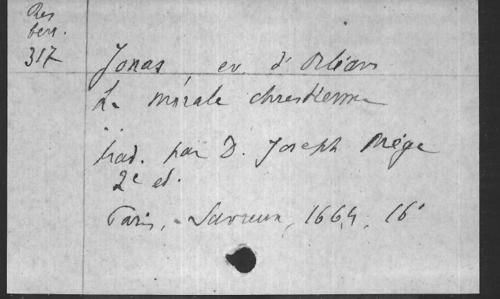 Res
ben.
317
Jonas, ev. d'Orléans
La morale chrestienne
trad. par D. Joseph Mège
2e ed.
Paris, Savreux, 1664, 16°